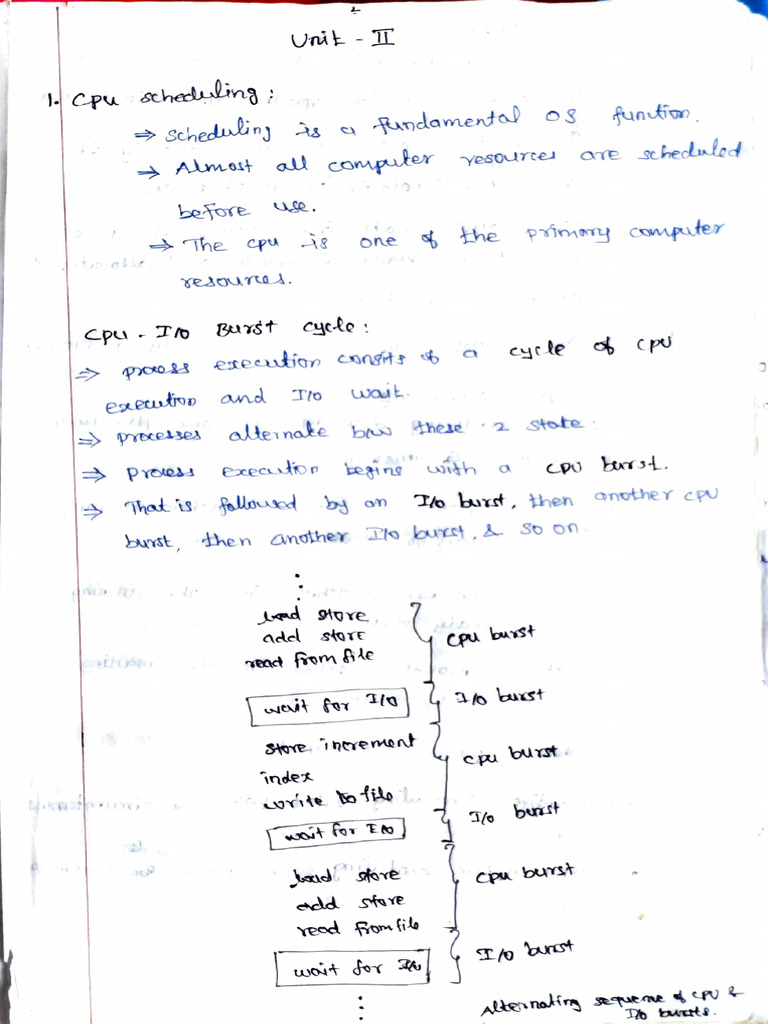 Unit - II
1. Cpu scheduling:
⇒ scheduling is a fundamental OS function.
⇒ Almost all computer resources are scheduled
before use.
⇒ The cpu is one of the primary computer
resources.
Cpu - I/O Burst cycle:
⇒ process execution consits of a cycle of cpu
execution and I/O wait.
⇒ processes alternate b/w these 2 state.
⇒ process execution begins with a cpu burst.
⇒ That is followed by an I/O burst, then another cpu
burst, then another I/O burst, & so on.
load store
add store
read from file
cpu burst
wait for I/O
I/O burst
store increment
index
write to file
cpu burst
wait for I/O
I/O burst
load store
add store
read from file
cpu burst
wait for I/O
I/O burst
Alternating sequence of cpu &
I/O bursts.